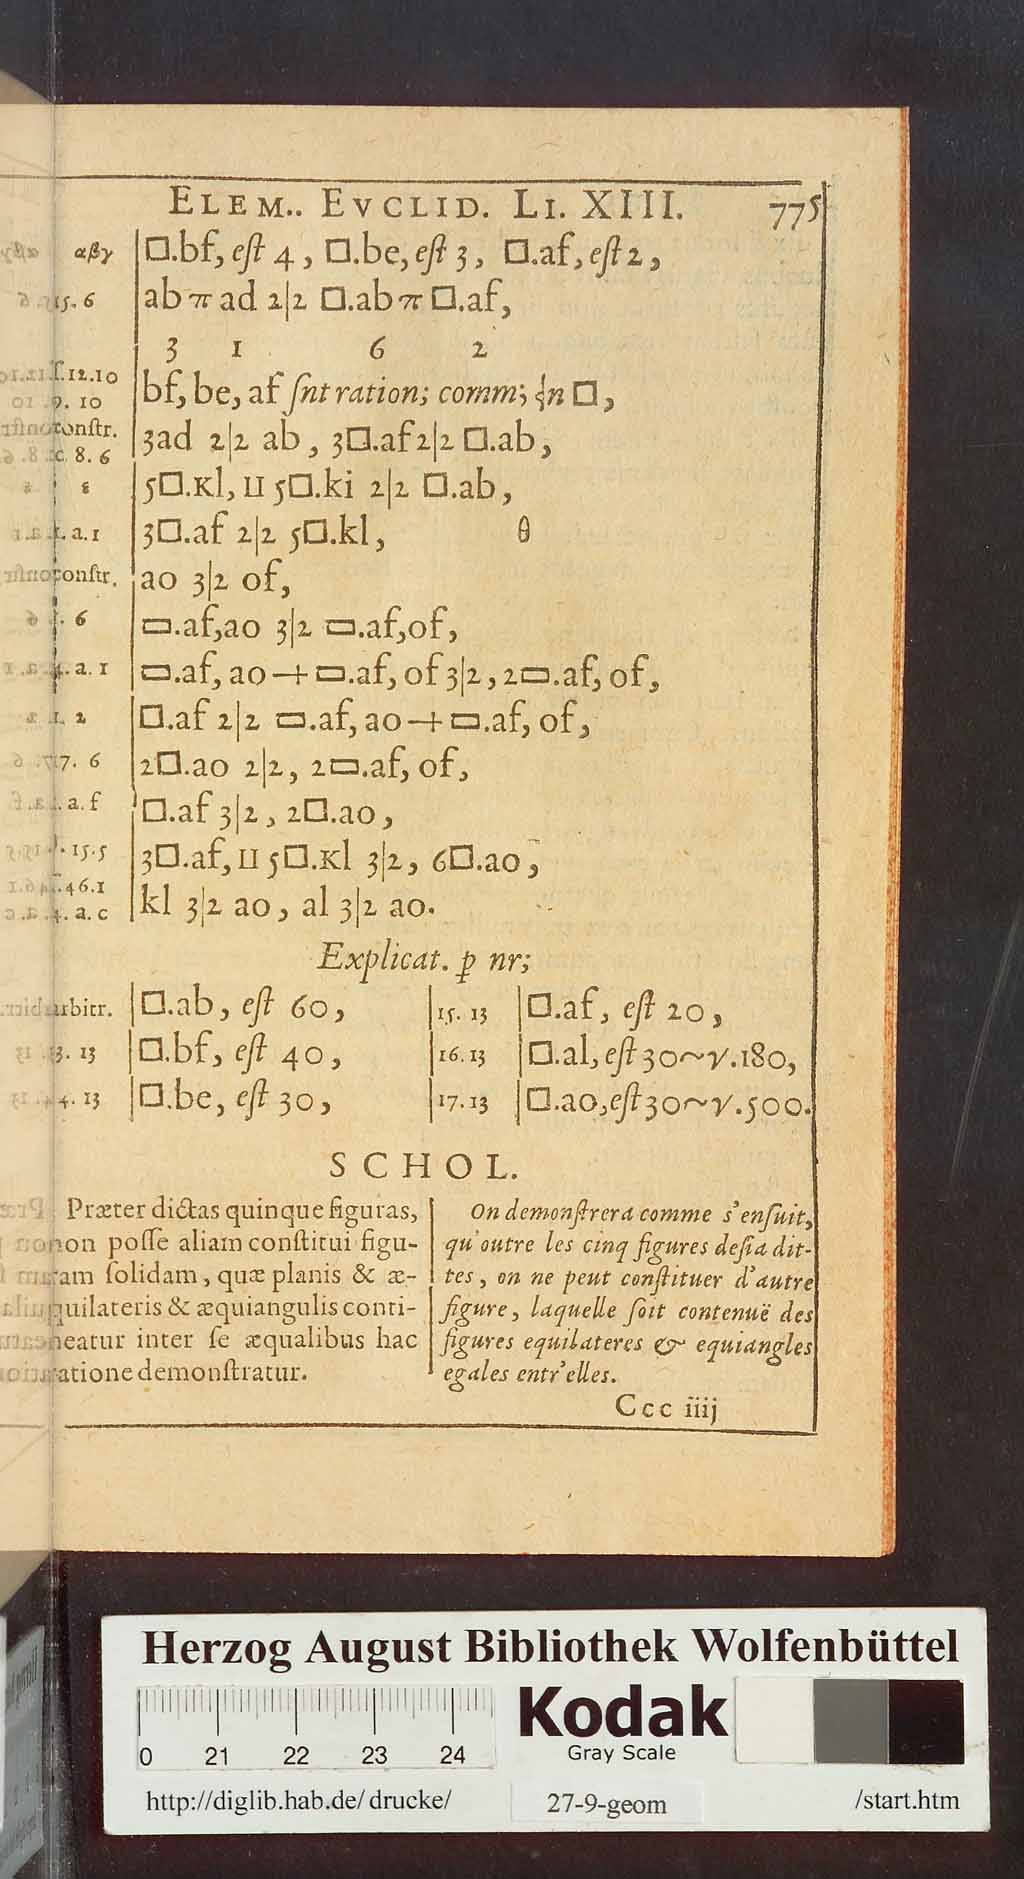 ELEM.. EVCLID. LI. XIII. 775
αβγ □.bf, eſt 4, □.be, eſt 3, □.af, eſt 2,
15. 6 ab π ad 2|2 □.ab π □.af,
3 1 6 2
12.10
9. 10 bf, be, af ſnt ration; comm; □,
conſtr. 3ad 2|2 ab, 3□.af 2|2 □.ab,
c. 8. 6
ε 5□.Kl, II 5□.ki 2|2 □.ab,
1. a. 1 3□.af 2|2 5□.kl, θ
conſtr. ao 3|2 of,
1. 6 ▭.af,ao 3|2 ▭.af,of,
4. a. 1 ▭.af, ao + ▭.af, of 3|2, 2▭.af, of,
1. 2 □.af 2|2 ▭.af, ao + ▭.af, of,
17. 6 2□.ao 2|2, 2▭.af, of,
1. a. f □.af 3|2, 2□.ao,
15.5 3□.af, II 5□.Kl 3|2, 6□.ao,
46.1
4. a. c kl 3|2 ao, al 3|2 ao.
Explicat. ꝑ nr;
arbitr. □.ab, eſt 60, 15. 13 □.af, eſt 20,
13. 13 □.bf, eſt 40, 16.13 □.al, eſt 30~√.180,
14. 13 □.be, eſt 30, 17.13 □.ao, eſt 30~√.500.
SCHOL.
Præter dictas quinque figuras,
non poſſe aliam conſtitui figu-
ram ſolidam, quæ planis & æ-
quilateris & æquiangulis conti-
neatur inter ſe æqualibus hac
ratione demonſtratur.
On demonſtrera comme s'enſuit,
qu'outre les cinq figures deſia dit-
tes, on ne peut conſtituer d'autre
figure, laquelle ſoit contenuë des
figures equilateres & equiangles
egales entr'elles.
Ccc iiij
Herzog August Bibliothek Wolfenbüttel
0 21 22 23 24
Kodak
Gray Scale
http://diglib.hab.de/ drucke/ 27-9-geom /start.htm